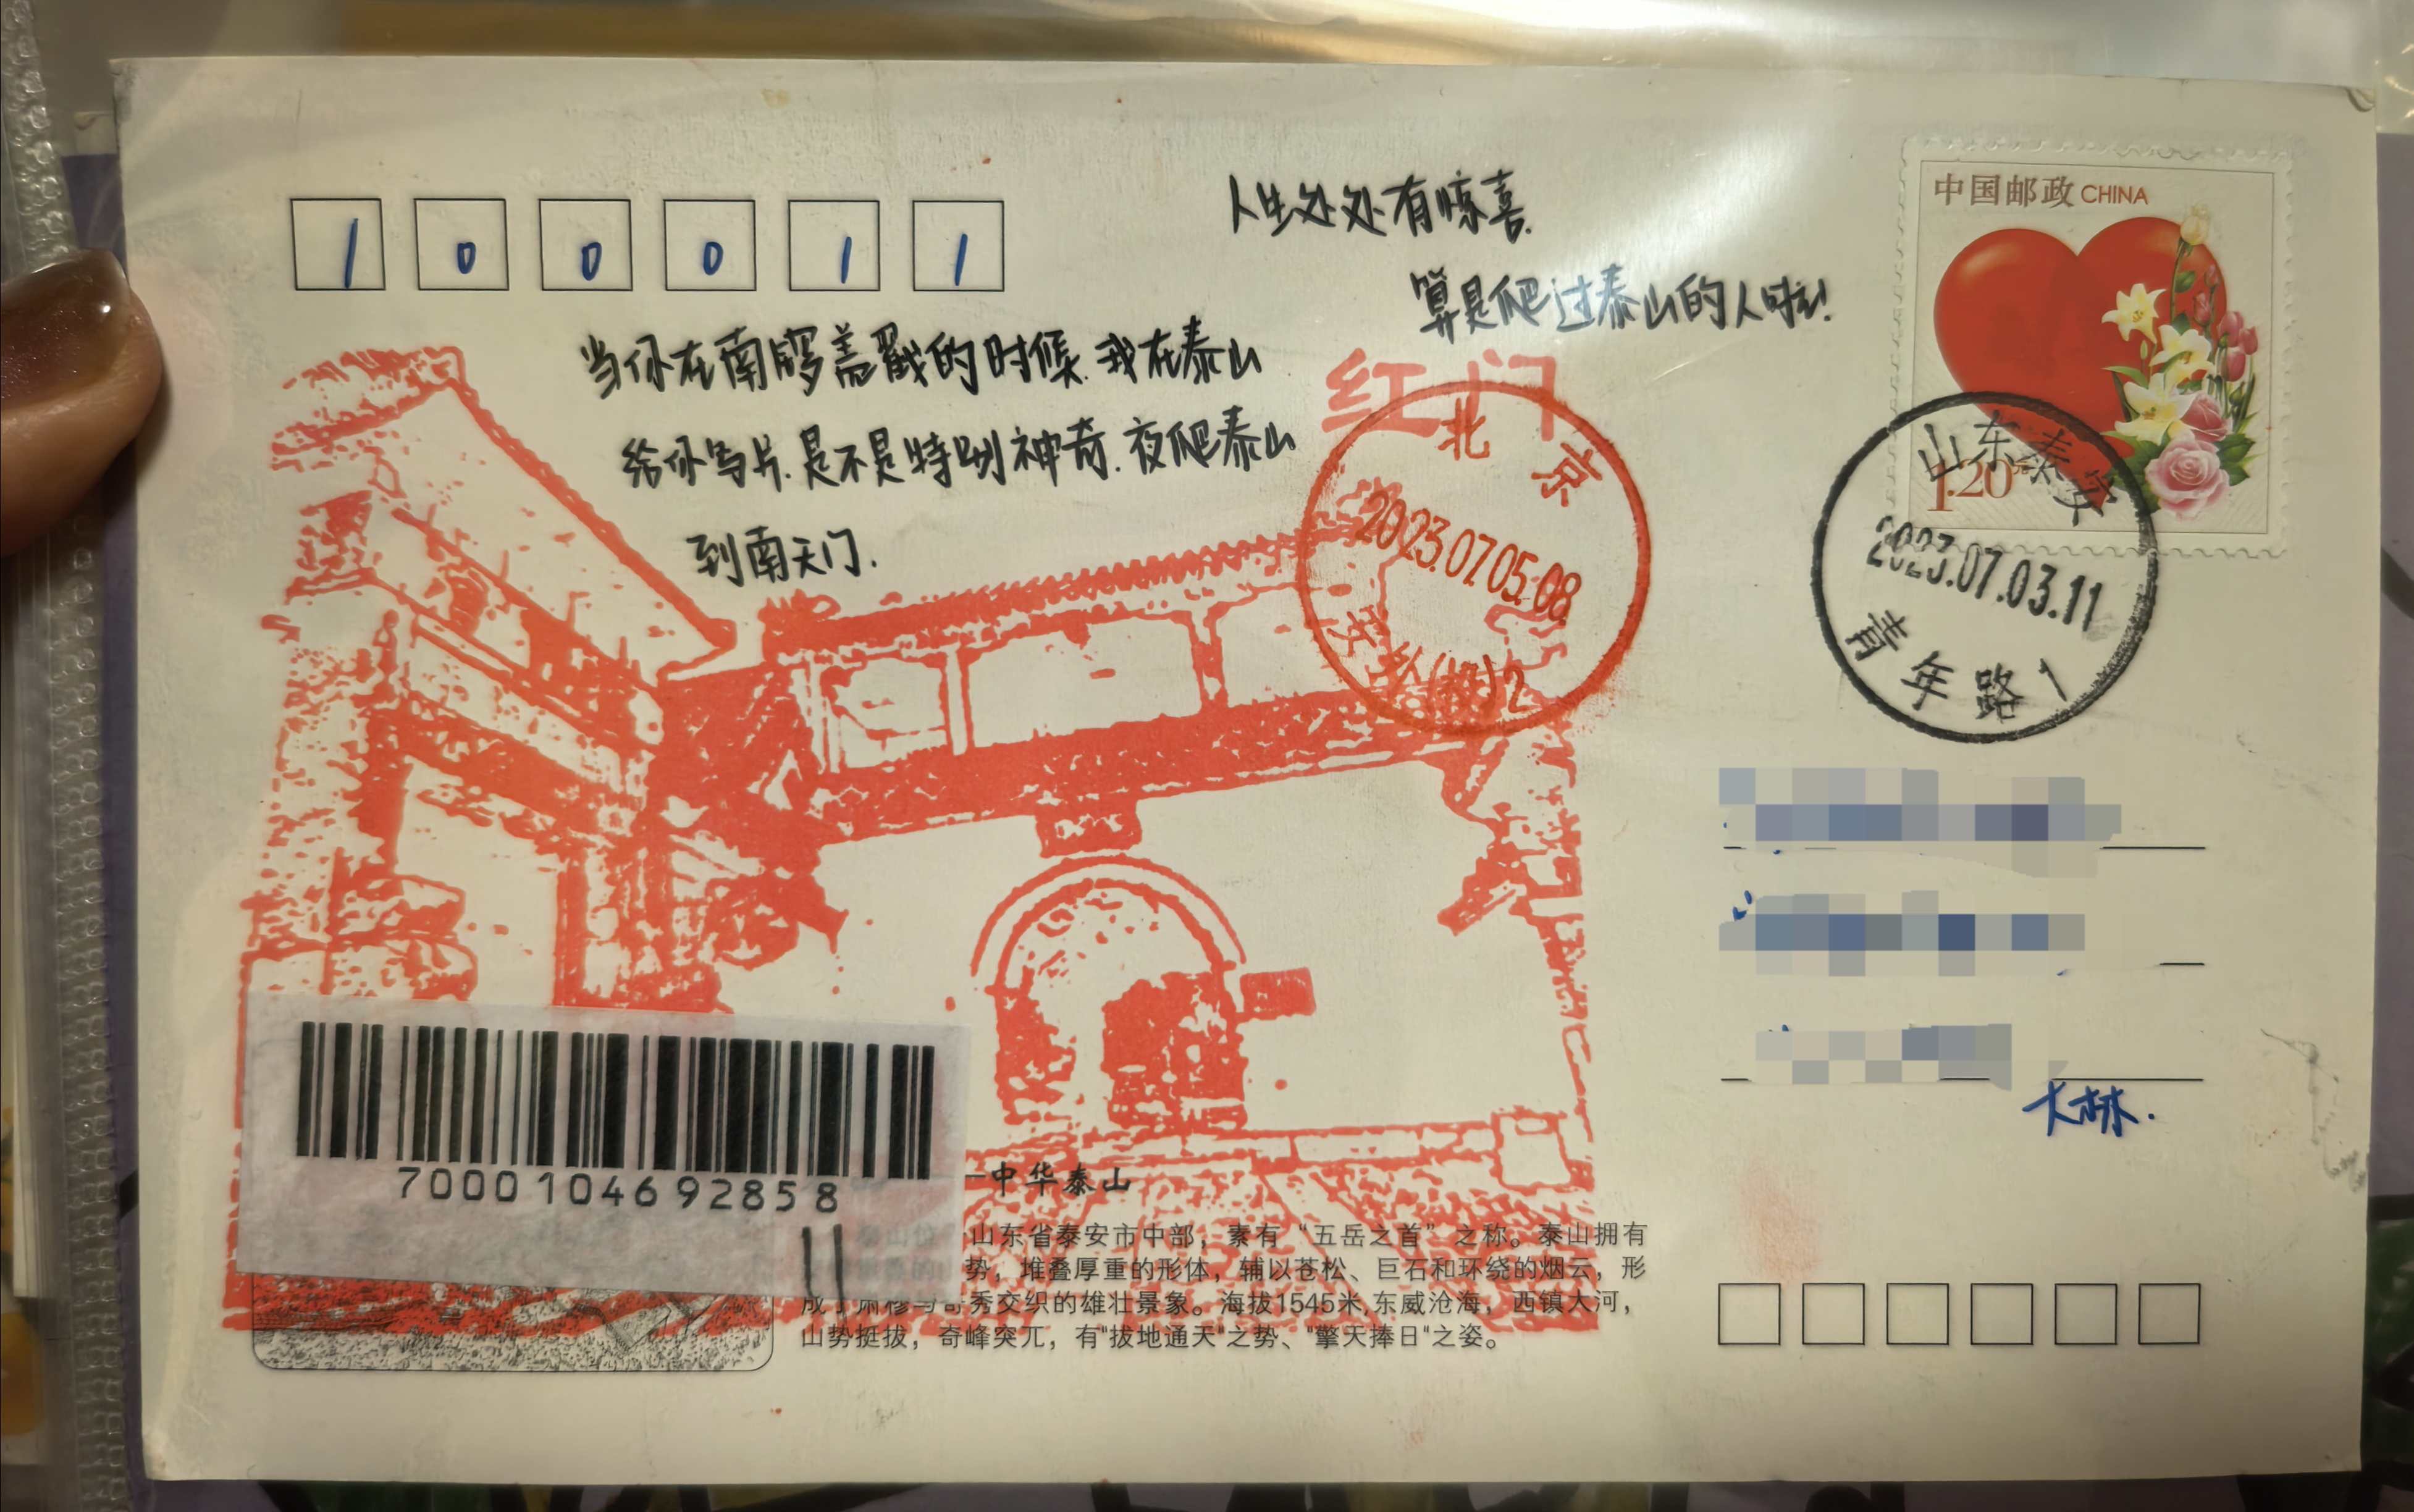 100011
人生处处有惊喜.
算是爬过泰山的人啦!
当你在南锣盖戳的时候.我在泰山
给你写片.是不是特别神奇.夜爬泰山
到南天门.
中国邮政 CHINA
1.20元
山东泰安
2023.07.03.11
青年路1
红门
北京
2023.07.05.08
安外(投)2
大林.
7000104692858
11
中华泰山
山东省泰安市中部，素有“五岳之首”之称。泰山拥有
势，堆叠厚重的形体，辅以苍松、巨石和环绕的烟云，形
成了肃穆与奇秀交织的雄壮景象。海拔1545米,东威沧海，西镇大河，
山势挺拔，奇峰突兀，有"拔地通天"之势、"擎天捧日"之姿。